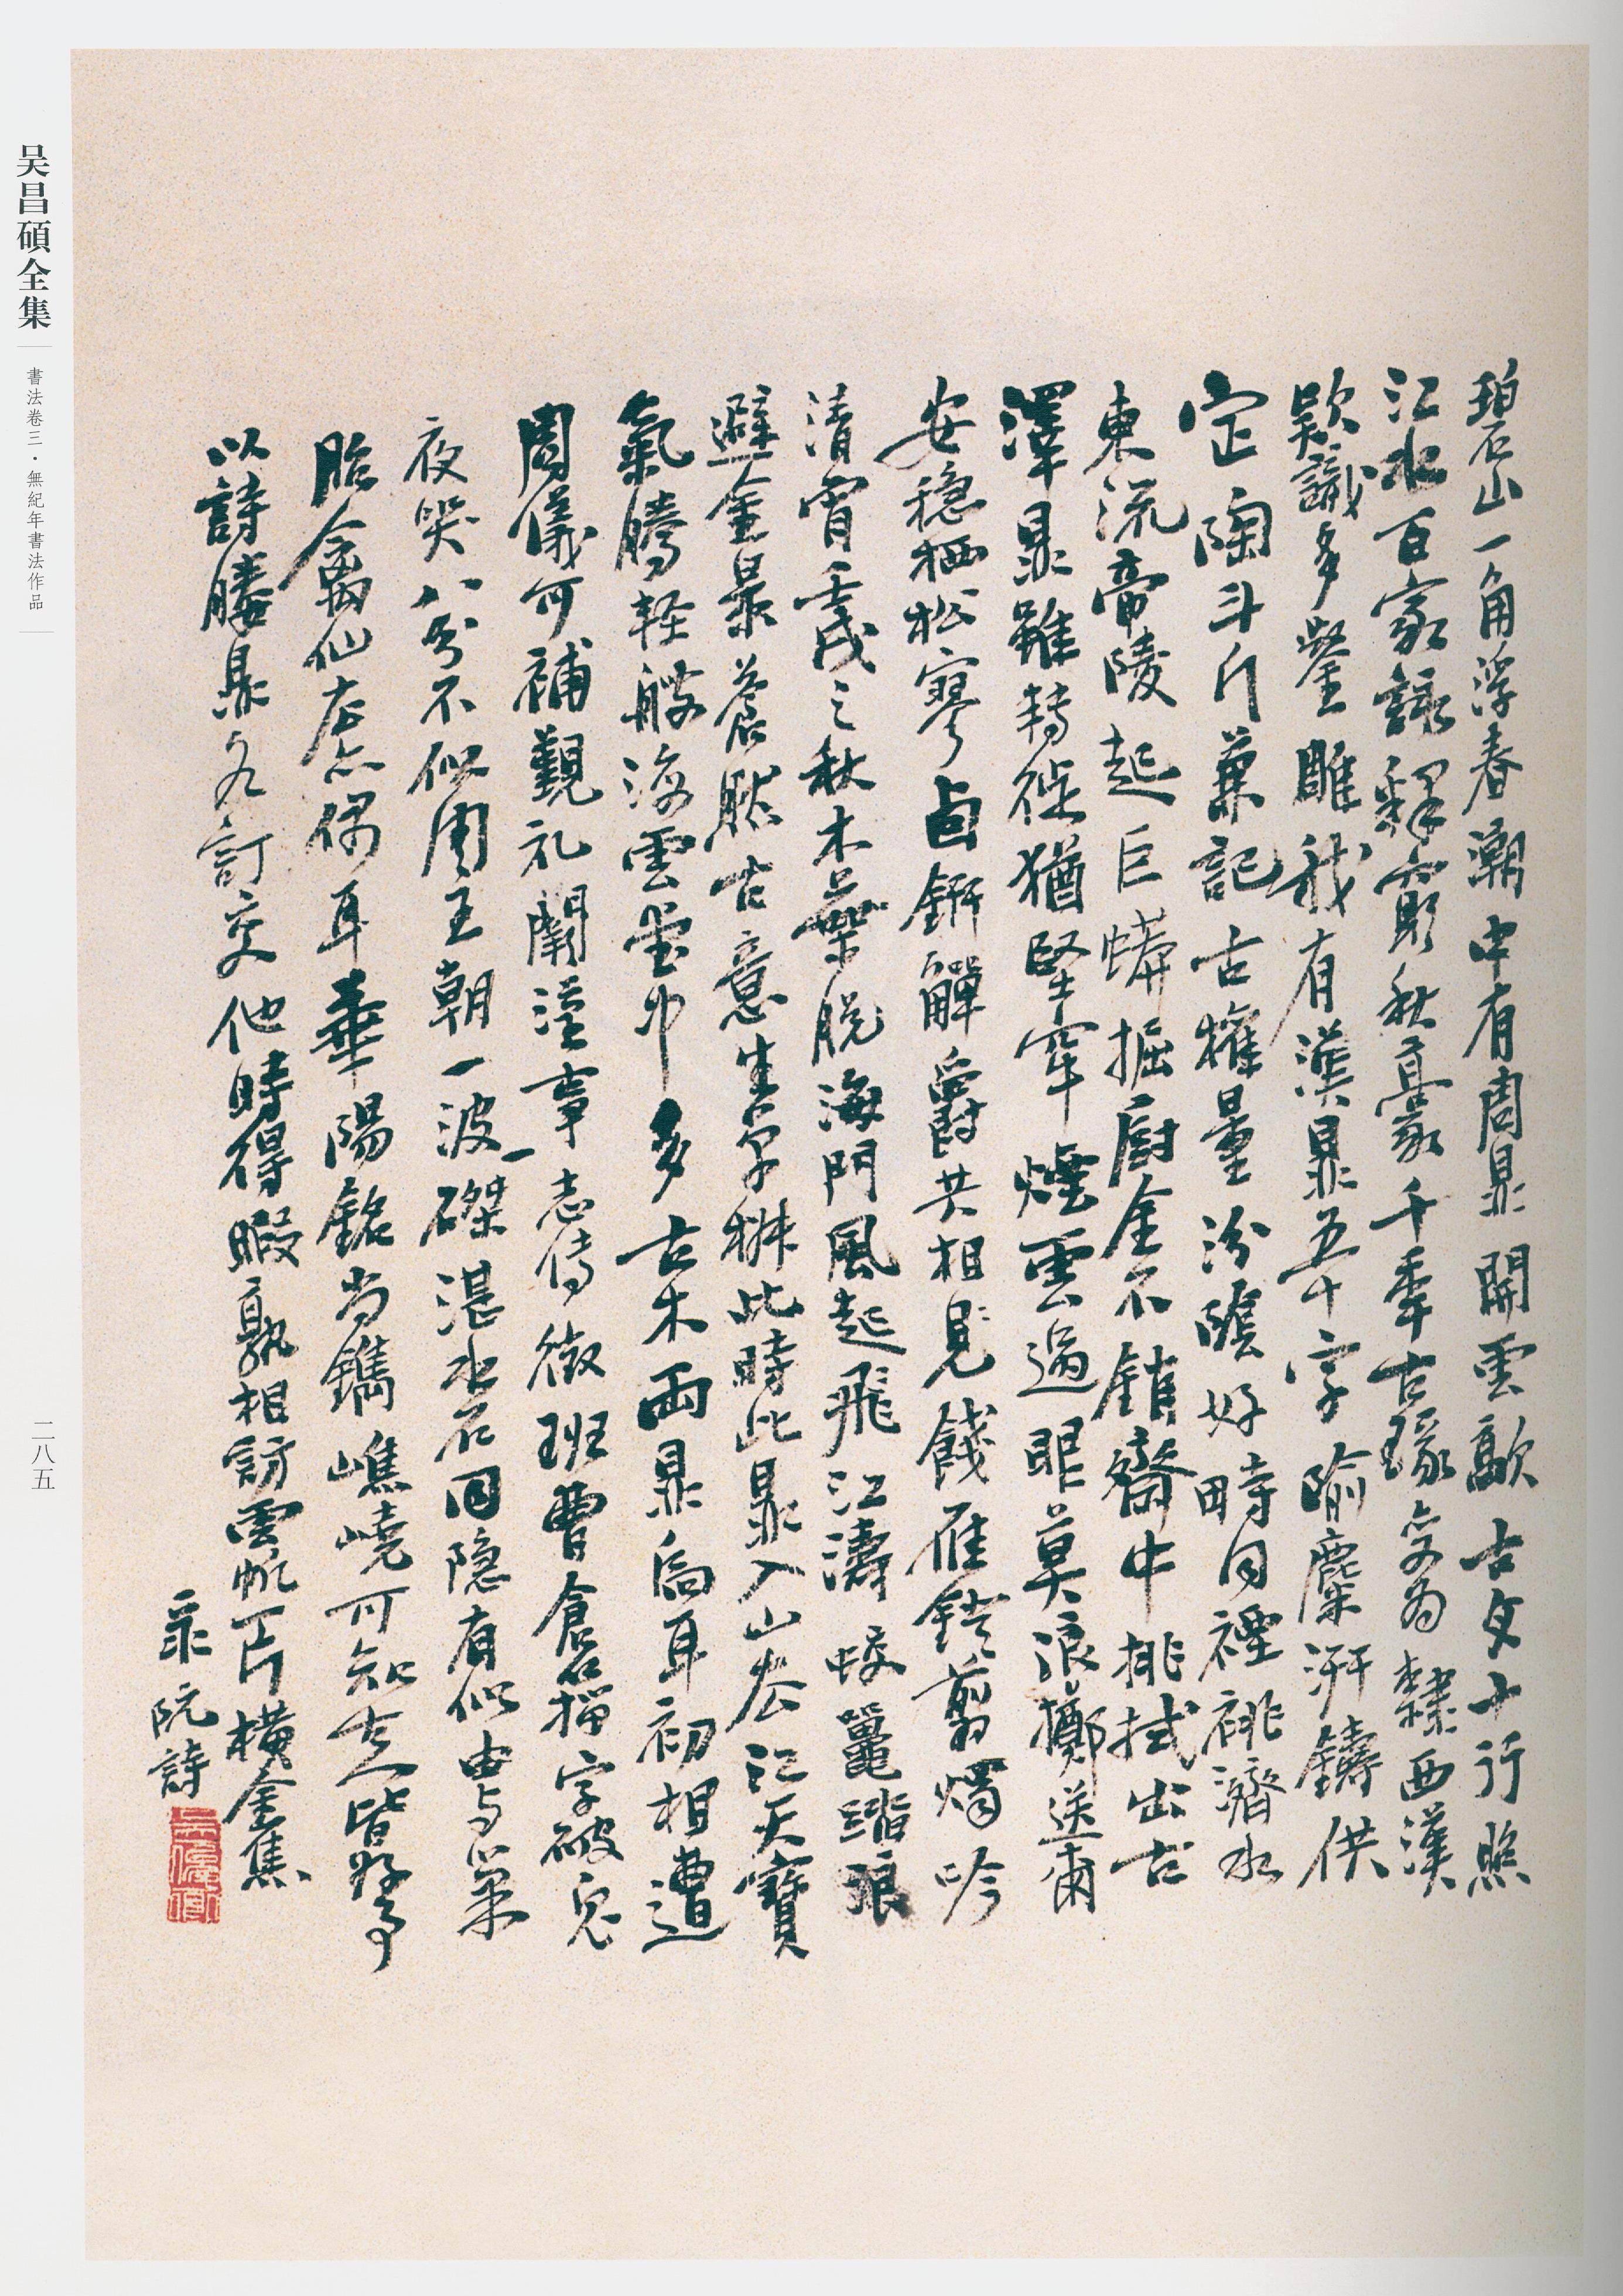 碧山一角浮春潮中有周鼎開雲歊古文十行照
江水百家詠釋窮秋豪千年古篆變為隸西漢
款識多鑿雕我有漢鼎五十字隃麋汧鑄供
定陶斗斤兼記古權量汾陰好畤同禋祧濟水
東流帝陵起巨蟒掘廚金不銷齋中挑拭出古
澤鼎雖轉徙猶堅牢煙雲過眼莫浪擲送爾
安穩栖松寥卣鈃觶爵共相見餞雁鐙剪燭吟
清宵壬戌之秋木葉脫海門風起飛江濤蛟鼉潛浪
避金景蒼然古意生穹楙此時此鼎入山去江天寶
氣騰輕艘海雲堂中多古木兩鼎為耳初相遭
周儀可補覲禮闕漢事志傳徵班曹倉籀字破鬼
夜哭八分不似周王朝一波一磔湛水石回隱有似由與巢
胎禽仙去亦偶耳華陽銘尚鐫嶕嶢可知古人皆好事
以詩媵鼎久訂交他時得暇孰相訪雲帆一片橫金焦
录阮詩
吴昌碩全集
書法卷三·無紀年書法作品
二八五